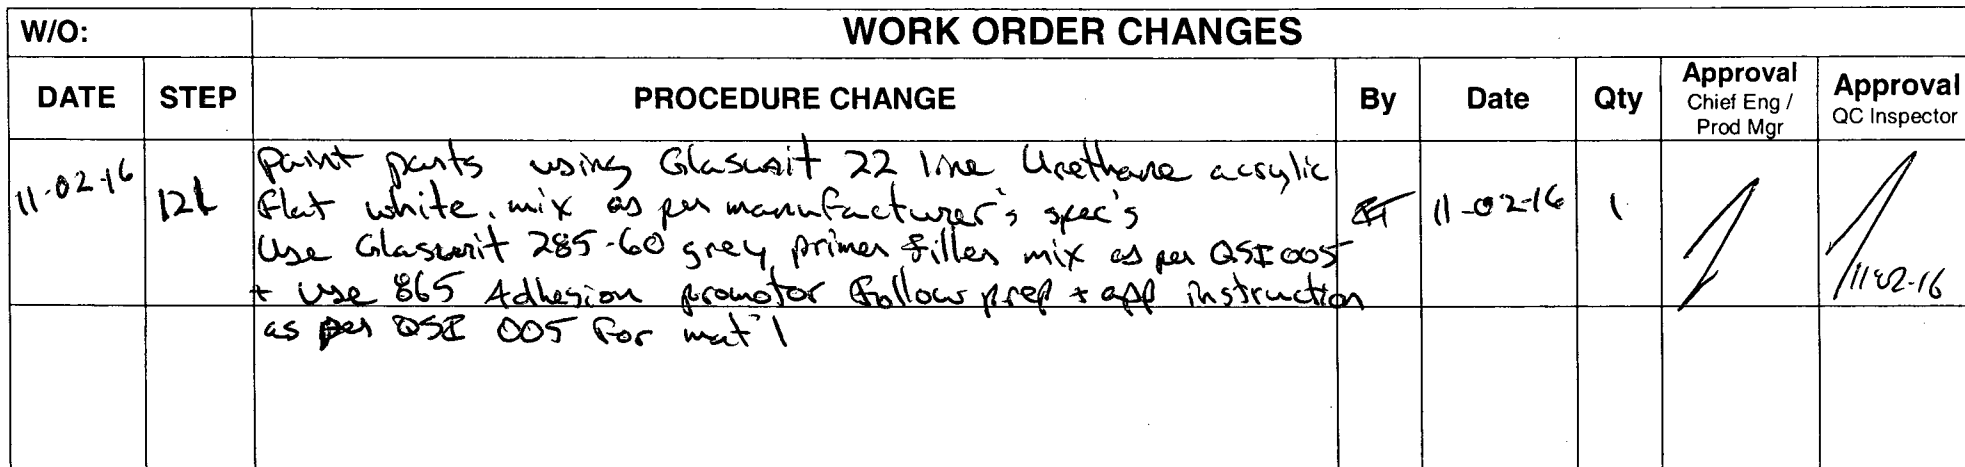 W/O: WORK ORDER CHANGES
DATE STEP PROCEDURE CHANGE By Date Qty Approval Chief Eng / Prod Mgr Approval QC Inspector
Paint parts using Glasurit 22 line Urethane acrylic
11-02-16 flat white. mix as per manufacturer's spec's 11-02-16 1
Use Glasurit 285-60 grey primer filler mix as per QSI 005
+ use 865 Adhesion promotor follow prep + app instruction 11-02-16
as per QSI 005 for mat'l